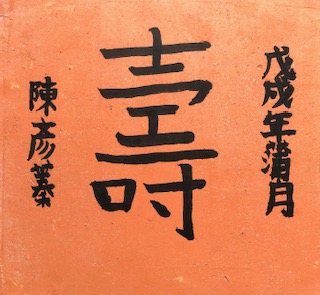 戊戌年蒲月
壽
陳彥蓁